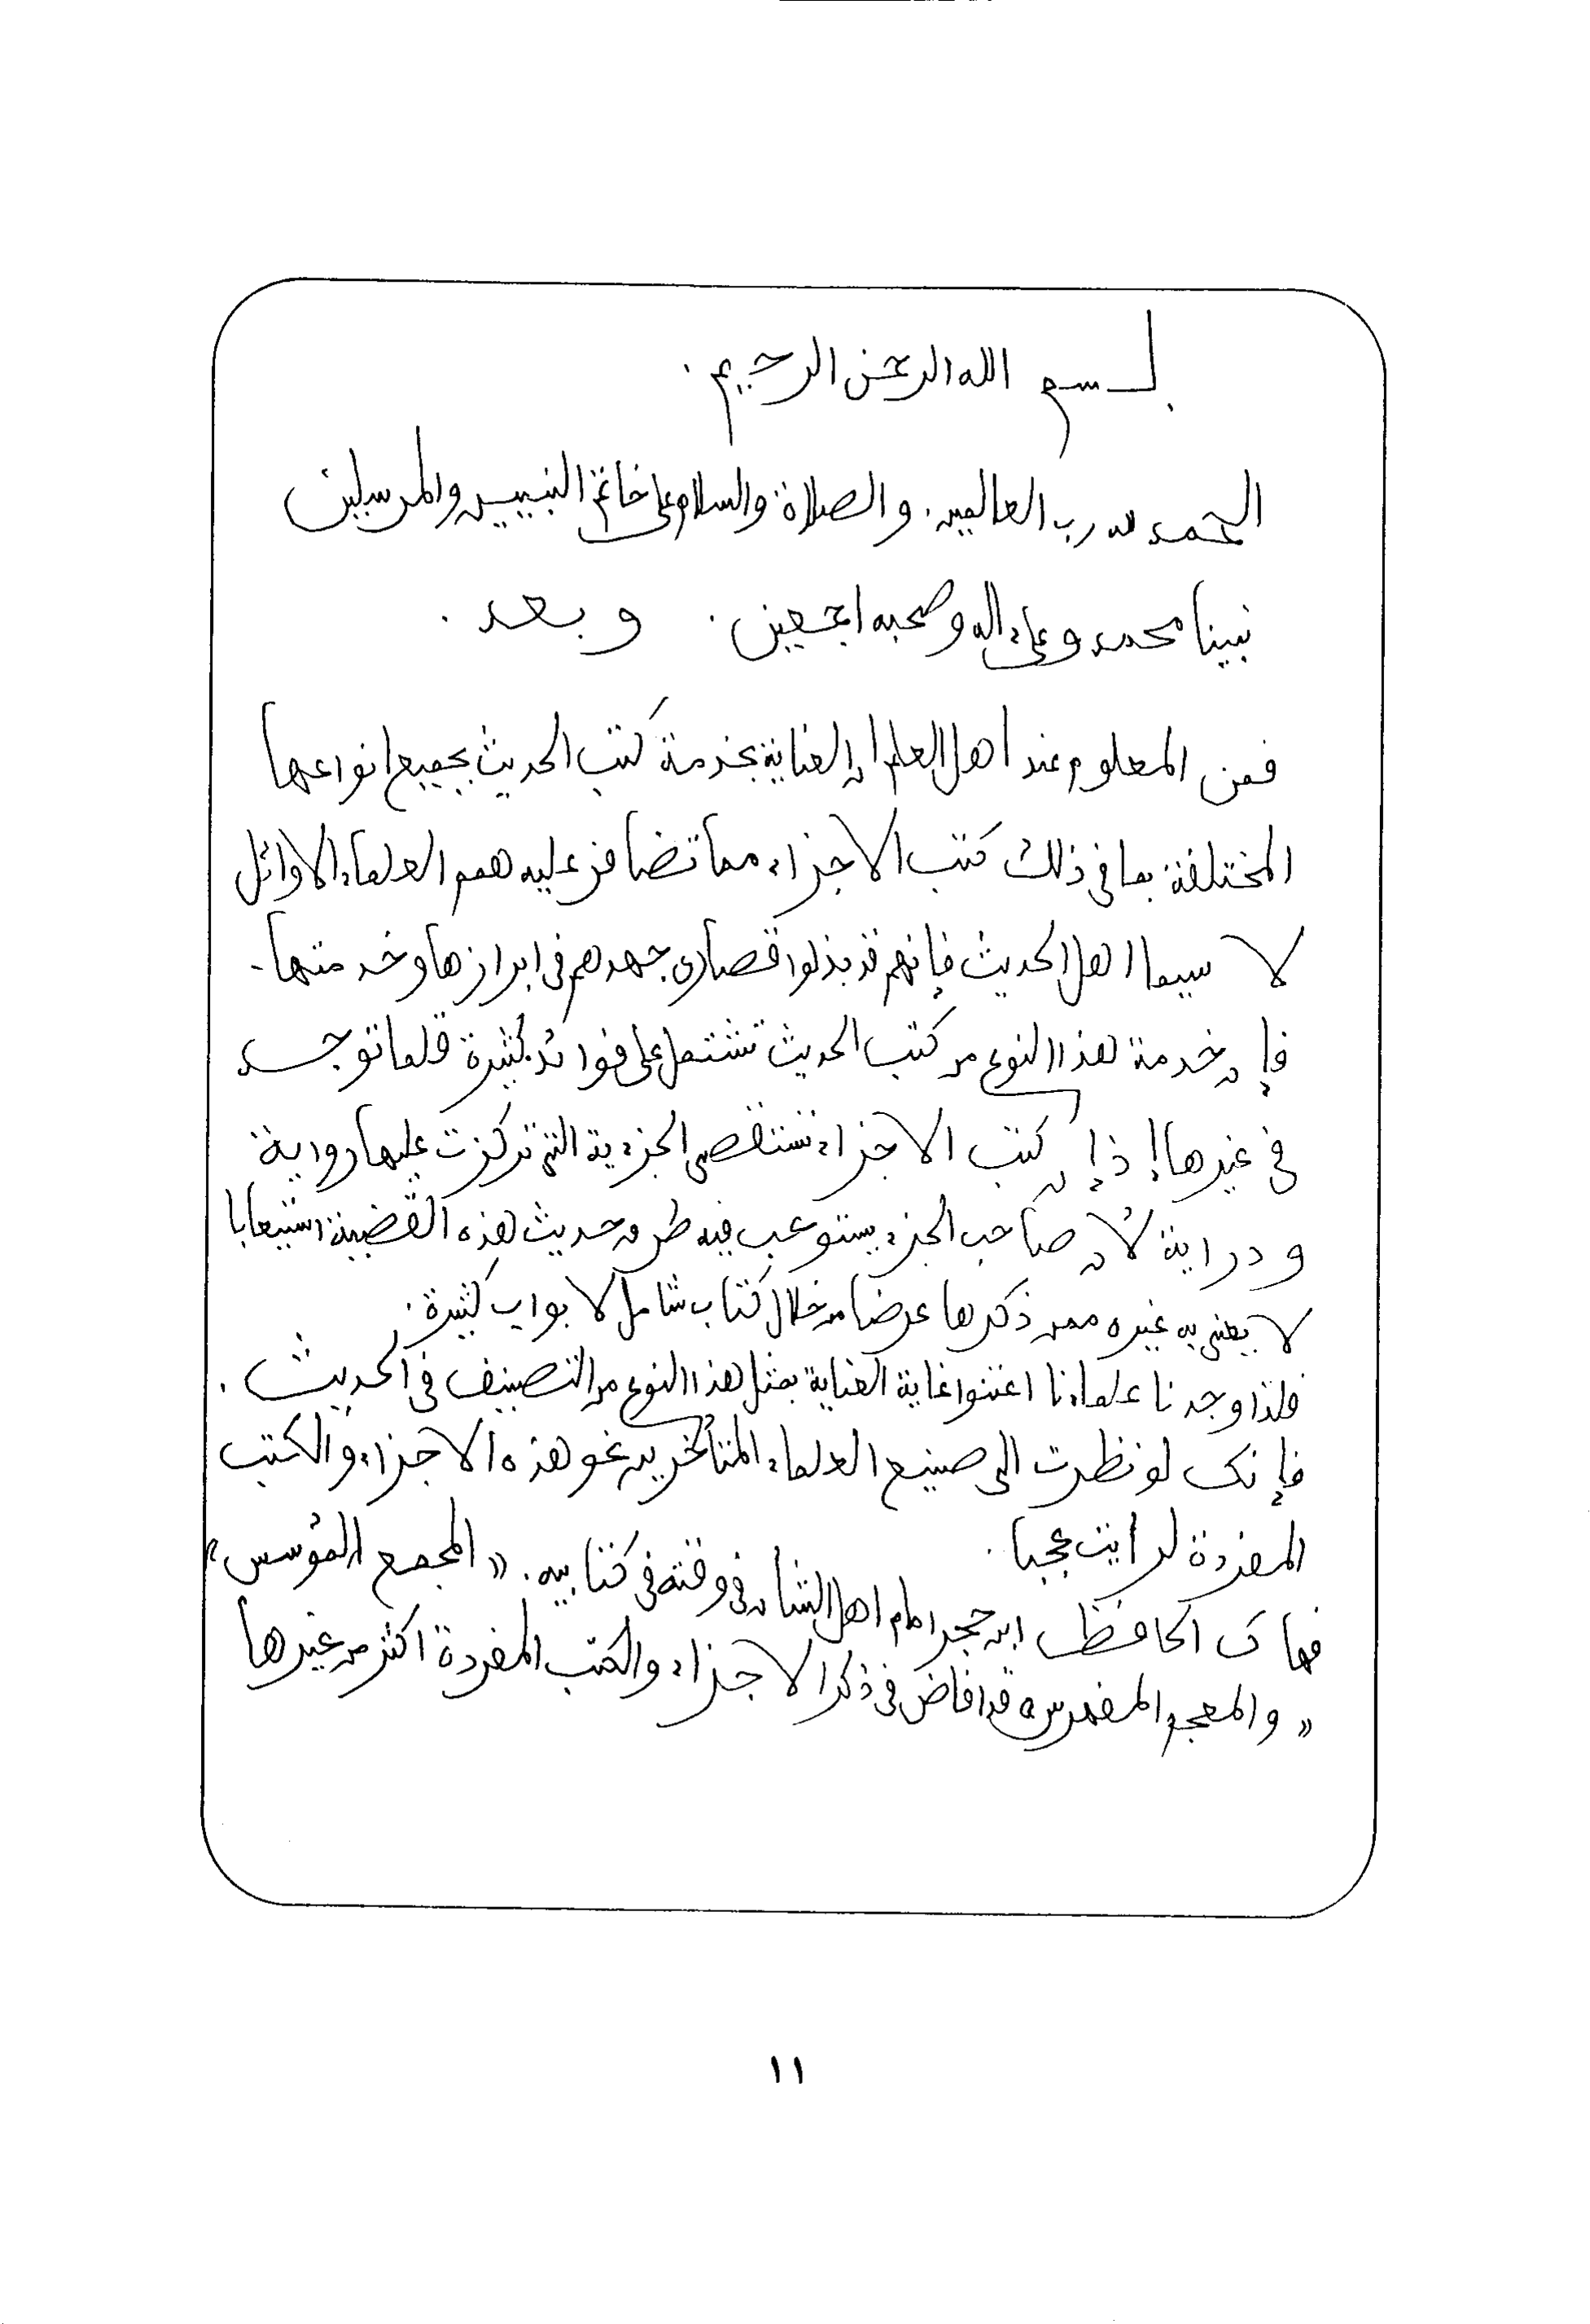 بسم الله الرحمن الرحيم.
الحمد لله رب العالمين. والصلاة والسلام على خاتم النبيين والمرسلين
نبينا محمد وعلى اله وصحبه اجمعين. وبعد.
فمن المعلوم عند اهل العلم ان العناية بخدمة كتب الحديث بجميع انواعها
المختلفة بما في ذلك كتب الاجزاء مما تضافر عليه همم العلماء الاوائل
لا سيما اهل الحديث فإنهم قد بذلوا قصارى جهدهم في ابرازها وخدمتها.
فإن خدمة هذا النوع من كتب الحديث تشتمل على فوائد كثيرة قلما توجد
في غيرها إذ إن كتب الاجزاء تستقصي الجزءية التي تركزت عليها رواية
ودراية لأن صاحب الجزء يستوعب فيه طرق حديث هذه القضية استيعابا
لا يعنى به غيره ممن ذكرها عرضا من خلال كتاب شامل لابواب كثيرة.
فلذا وجدنا علماءنا اعتنوا غاية العناية بمثل هذا النوع من التصنيف في الحديث.
فإنك لو نظرت الى صنيع العلماء المتأخرين نحو هذه الاجزاء والكتب
المفردة لرأيت عجبا.
فهاك الحافظ ابن حجر امام اهل الشان في وقته في كتابيه. «المجمع المؤسس»
«والمعجم المفهرس» قد افاض في ذكر الاجزاء والكتب المفردة اكثر من غيرها
١١